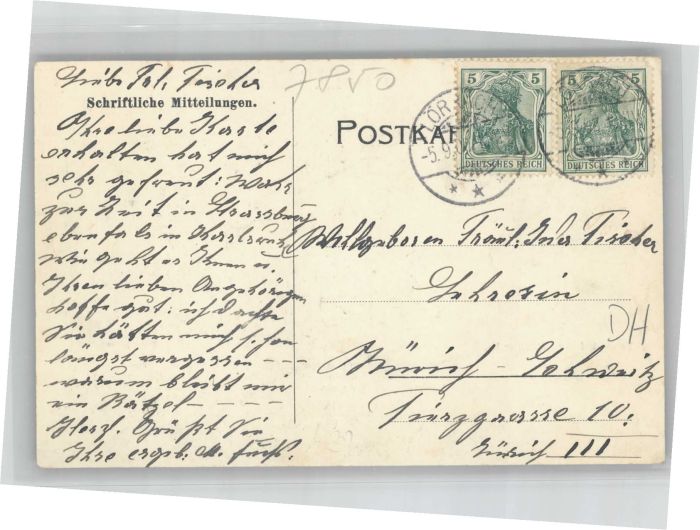 Liebe Frl. Fischer
7850
Schriftliche Mitteilungen.
Ihre liebe Karte
erhalten hat mich
sehr gefreut: war
zur Zeit in Strassburg
ebenfals in Karlsruh
wie geht es Ihnen u.
Ihren lieben Angehörigen
hoffe gut: ich dachte
Sie hätten mich schon
längst vergessen - - -
warum bleibt mir
ein Rätzel - - -
Herzl. Grüßt Sie
Ihre ergb. M. Fuchs.
POSTKA
5 5
5 5
DEUTSCHES REICH
DEUTSCHES REICH
LÖR
-5.9
Wohlgeboren Fräul. Ida Fischer
Lehrerin
DH
Zürich - Schweiz
10.
Zürich III